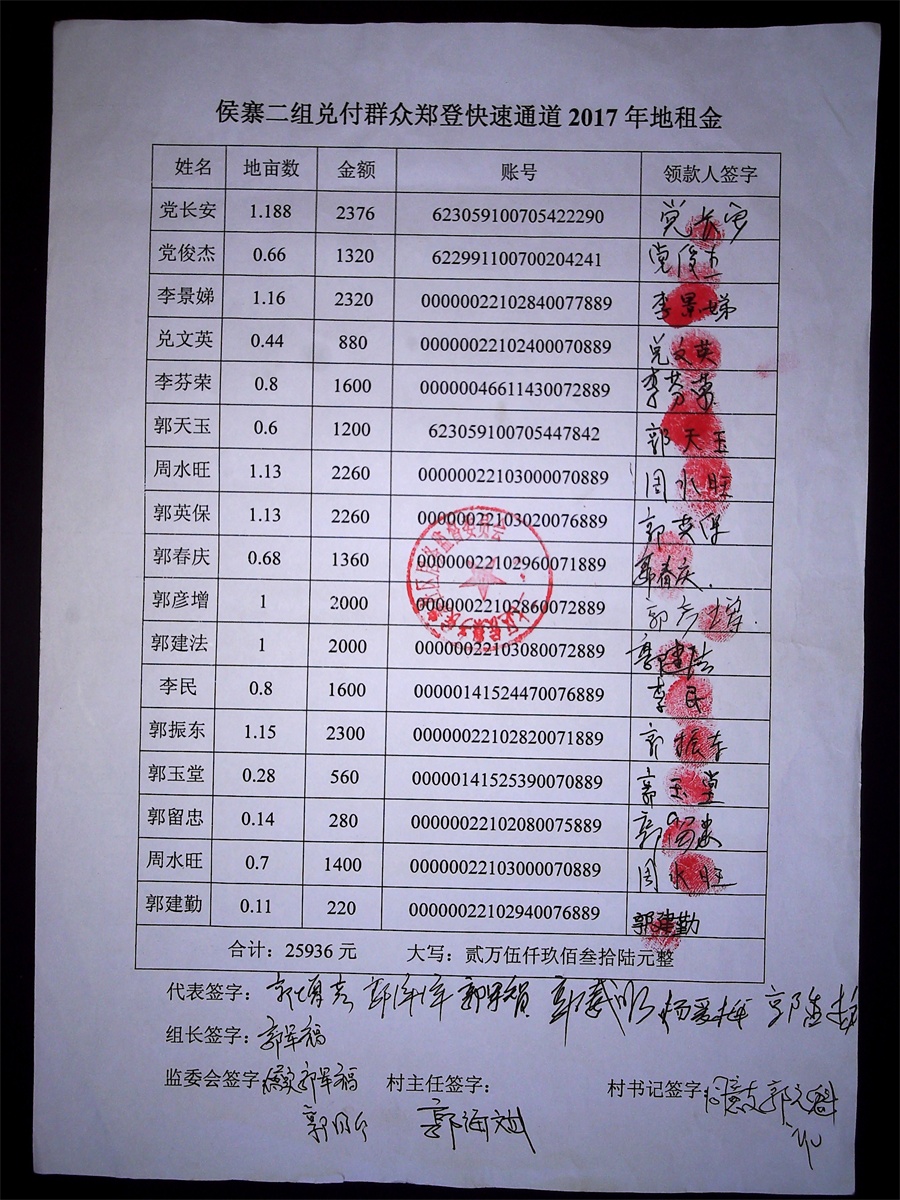 侯寨二组兑付群众郑登快速通道 2017 年地租金
姓名 地亩数 金额 账号 领款人签字
党长安 1.188 2376 623059100705422290 党长安
党俊杰 0.66 1320 622991100700204241 党俊杰
李景娣 1.16 2320 00000022102840077889 李景娣
兑文英 0.44 880 00000022102400070889 兑文英
李芬荣 0.8 1600 00000046611430072889 李芬荣
郭天玉 0.6 1200 623059100705447842 郭天玉
周水旺 1.13 2260 00000022103000070889 周水旺
郭英保 1.13 2260 00000022103020076889 郭英保
郭春庆 0.68 1360 00000022102960071889 郭春庆
郭彦增 1 2000 00000022102860072889 郭彦增
郭建法 1 2000 00000022103080072889 郭建法
李民 0.8 1600 00000141524470076889 李民
郭振东 1.15 2300 00000022102820071889 郭振东
郭玉堂 0.28 560 00000141525390070889 郭玉堂
郭留忠 0.14 280 00000022102080075889 郭留忠
周水旺 0.7 1400 00000022103000070889 周水旺
郭建勤 0.11 220 00000022102940076889 郭建勤
合计：25936 元 大写：贰万伍仟玖佰叁拾陆元整
代表签字：
组长签字：郭军福
监委会签字 郭军福 村主任签字： 村书记签字：
郭海斌